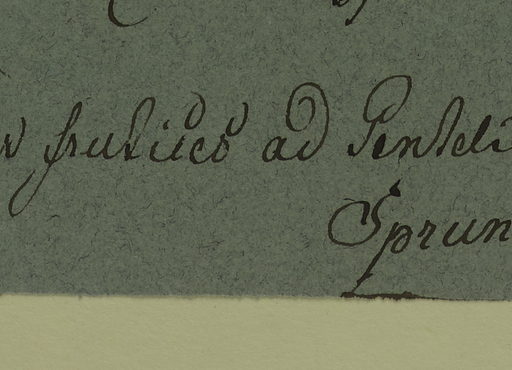 frutices ad Penteli
Sprun